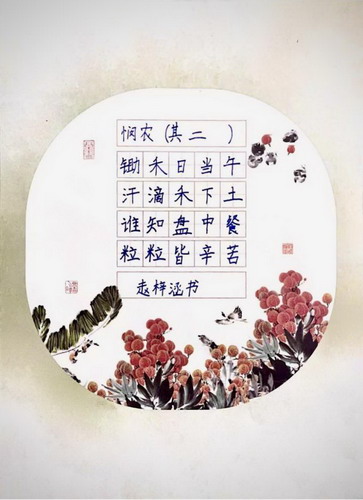 悯农(其二 )
锄禾日当午
汗滴禾下土
谁知盘中餐
粒粒皆辛苦
赵梓涵书